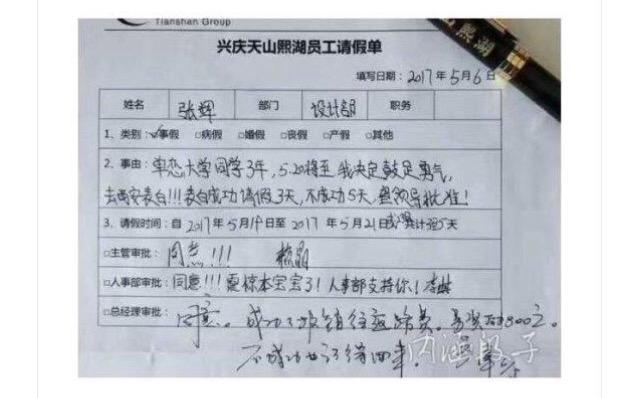 Tianshan Group
兴庆天山熙湖员工请假单
填写日期：2017年5月6日
姓名 张辉 部门 设计部 职务
1、类别：☑事假 □病假 □婚假 □丧假 □产假 □其他
2、事由：单恋大学同学3年，5.20将至 我决定鼓足勇气，
去西安表白!!!表白成功请假3天，不成功5天，望领导批准！
3、请假时间：自2017年5月19日至2017年5月21日 共计 天
□主管审批： 同意!!!
□人事部审批：同意!!!震惊本宝宝了！人事部支持你！
□总经理审批： 同意。成功了报销往返路费。
不成功也记得回来。
内涵段子
天山熙湖